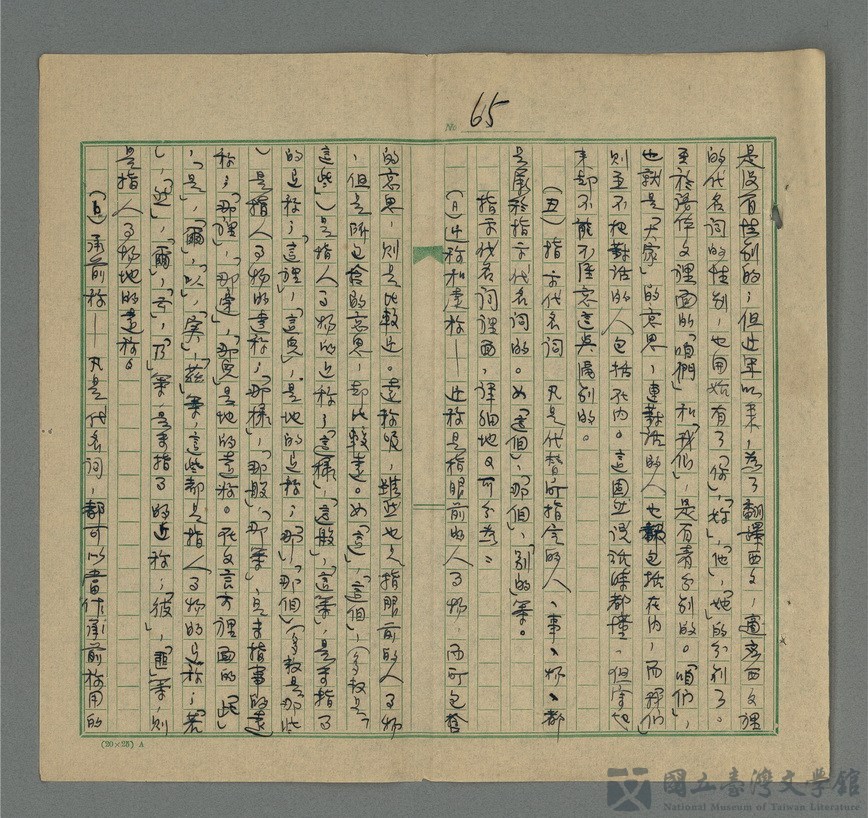 № 65
是沒有性別的；但近年以來，為了翻譯西文，適應西文裡
的代名詞的性別，也開始有了「你」，「妳」，「他」，「她」的分別了。
至於語体文裡面的「咱們」和「我們」，是有着分別的。「咱們」，
也就是「大家」的意思，連對話的人也都包括在內，而「我們」
則並不把對話的人包括在內。這固然說話時都懂，但寫起
來却不能不注意這點區別的。
(丑) 指示代名詞 凡是代替所指定的人、事、物、都
是屬於指示代名詞的。如「這個」，「那個」，「別的」等。
指示代名詞裡面，詳細地又可分為：
(A) 近称和遠称——近称是指眼前的人事物，而所包含
的意思，則是比較近。遠称呢，雖然也是指眼前的人事物
，但是所包含的意思，却比較遠。如「這」，「這個」，(多数是「
這些」)是指人事物的近称；「這樣」，「這般」，「這等」，是專指事
的近称；「這裡」，「這兒」，是地的近称；「那」，「那個」(多数是「那些
」)是指人事物的遠称；「那樣」，「那般」，「那等」，是專指事的遠
称；「那裡」，「那邊」，「那兒」是地的遠称。在文言文裡面的「此」
，「是」，「爾」，「以」，「寔」，「茲」等，這些都是指人事物的近称；「若
」，「此」，「爾」，「云」，「乃」等是專指事的近称；「彼」，「匪」等，則
是指人事物地的遠称。
(B) 承前称——凡是代名詞，都可以當作承前称用的
(20×25) A
國立臺灣文學館
National Museum of Taiwan Literature